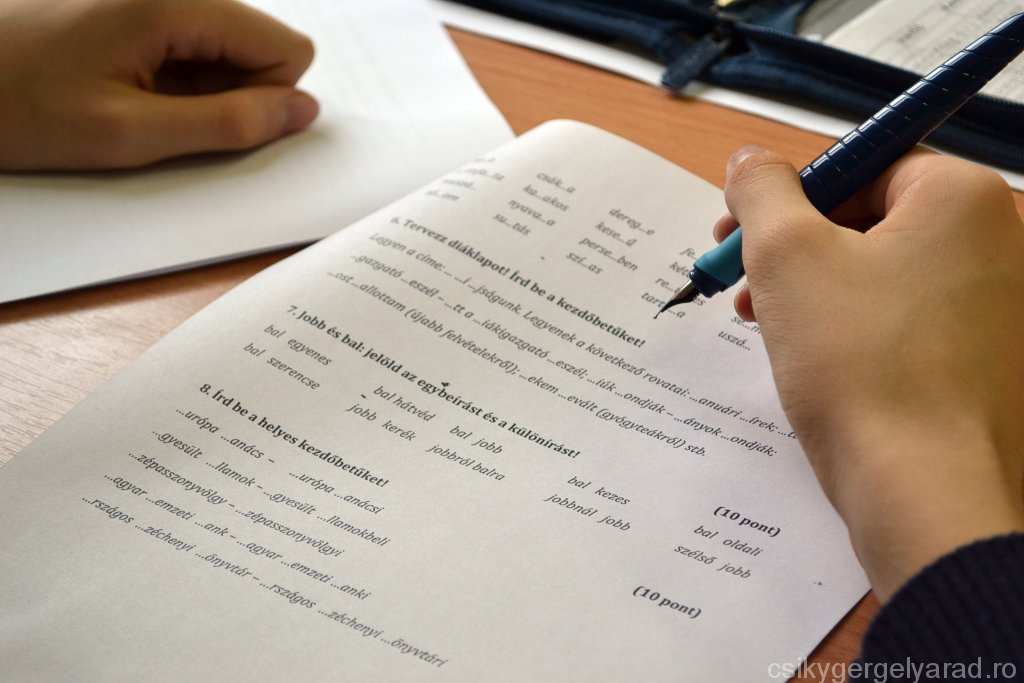 csák...a
ka...akos dereg...e
nyava...a kese...ű
su...tás perse...ben
szí...as
uszá...
6. Tervezz diáklapot! Írd be a kezdőbetűket!
Legyen a címe: ... ...jságunk. Legyenek a következő rovatai: ...anuári ...írek;
...gazgató ...eszél – ...tt a ...iákigazgató ...eszél; ...iúk ...ondják – ...ányok ...ondják;
...ost ...allottam (újabb felvételekről); ...ekem ...evált (gyógyteákról) stb.
7. Jobb és bal: jelöld az egybeírást és a különírást! (10 pont)
bal egyenes bal hátvéd bal jobb bal kezes bal oldali
bal szerencse jobb kerék jobbról balra jobbnál jobb szélső jobb
8. Írd be a helyes kezdőbetűket! (10 pont)
...urópa ...anács – ...urópa ...anácsi
...gyesült ...llamok – ...gyesült ...llamokbeli
...zépasszonyvölgy – ...zépasszonyvölgyi
...agyar ...emzeti ...ank – ...agyar ...emzeti ...anki
...rszágos ...zéchenyi ...önyvtár – ...rszágos ...zéchenyi ...önyvtári
csikygergelyarad.ro